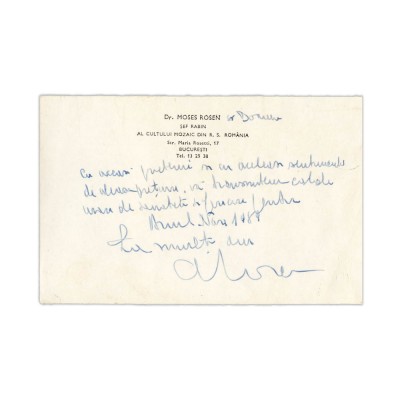 Dr. MOSES ROSEN și Doamna
ȘEF RABIN
AL CULTULUI MOZAIC DIN R. S. ROMÂNIA
Str. Maria Rosetti, 17
BUCUREȘTI
Tel. 13 25 38
cu aceeași prețuire și cu aceleași sentimente
de vă transmitem calde
urări de sănătate și fericire pentru
Anul Nou 1988
La mulți ani
M Rosen